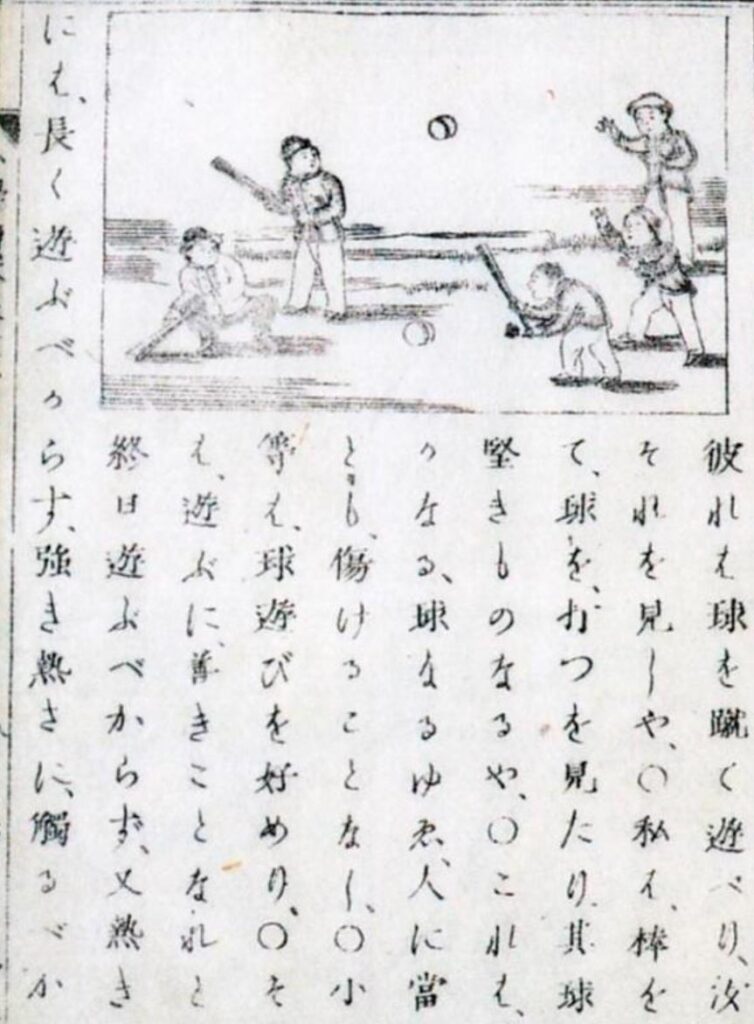 彼れは球を蹴て遊べり、汝
それを見しや、〇私は、棒を
て、球を、打つを見たり、其球
堅きものなるや、〇これは、
かなる、球なるゆゑ、人に當
とも、傷けることなし、〇小
等は、球遊びを好めり、〇そ
は、遊ぶに、善きことなれと
終日遊ぶべからず、又熱き
には、長く遊ぶべからす、強き熱さに、觸るべか